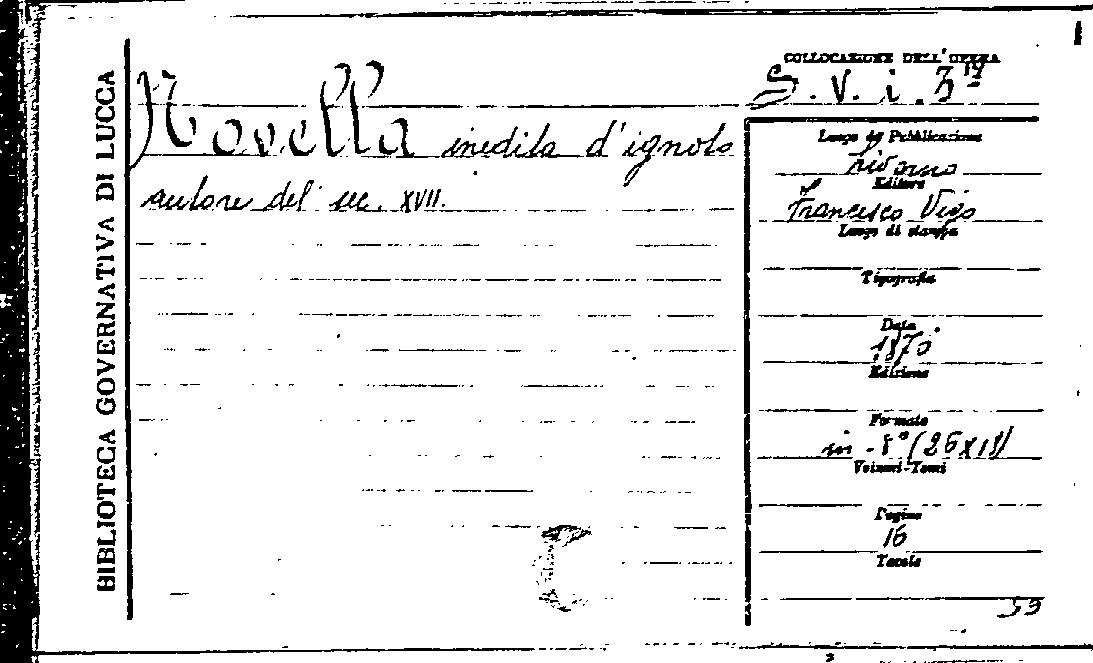 BIBLIOTECA GOVERNATIVA DI LUCCA
Novella inedita d'ignoto
autore del sec. XVII.
COLLOCAZIONE DELL'OPERA
S. V. i. 3
Luogo di Pubblicazione
Livorno
Editore
Francesco Vigo
Luogo di stampa
Tipografia
Data
1870
Edizione
Formato
in-8° (26X18)
Volumi-Tomi
Pagine
16
Tavole